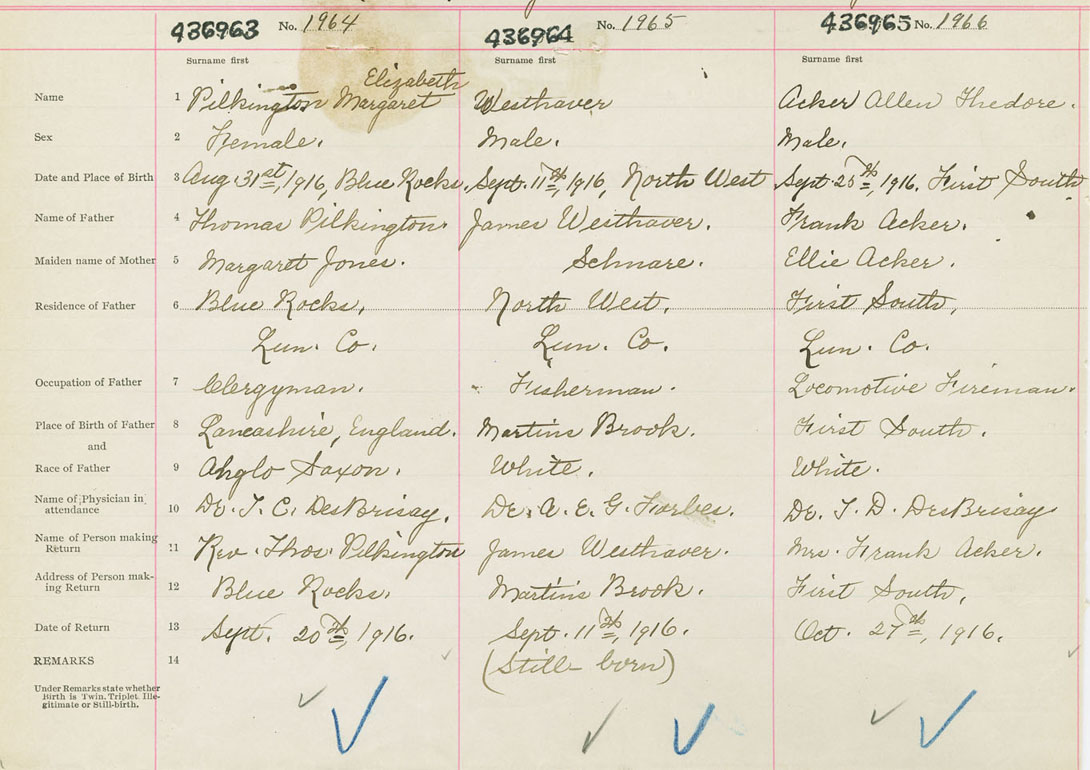 436963 No. 1964 436964 No. 1965 436965 No. 1966
Surname first Surname first Surname first
Elizabeth
Name 1 Pilkington Margaret Westhaver Acker Allen Thedore.
Sex 2 Female. Male. Male.
Date and Place of Birth 3 Aug. 31st, 1916, Blue Rocks, Sept. 11th, 1916, North West Sept. 25th, 1916. First South
Name of Father 4 Thomas Pilkington. James Westhaver. Frank Acker.
Maiden name of Mother 5 Margaret Jones. Schnare. Ellie Acker.
Residence of Father 6 Blue Rocks, North West, First South,
Lun. Co. Lun. Co. Lun. Co.
Occupation of Father 7 Clergyman. Fisherman. Locomotive Fireman.
Place of Birth of Father 8 Lancashire, England. Martins Brook. First South.
and
Race of Father 9 Anglo Saxon. White. White.
Name of Physician in
attendance 10 Dr. T. C. DesBrisay. Dr. A. E. G. Forbes. Dr. T. D. DesBrisay
Name of Person making
Return 11 Rev. Thos. Pilkington James Westhaver. Mrs. Frank Acker.
Address of Person mak-
ing Return 12 Blue Rocks. Martins Brook. First South,
Date of Return 13 Sept. 20th, 1916. Sept. 11th, 1916. Oct. 27th, 1916.
REMARKS 14 (Still-born)
Under Remarks state whether
Birth is Twin, Triplet, Ille-
gitimate or Still-birth.